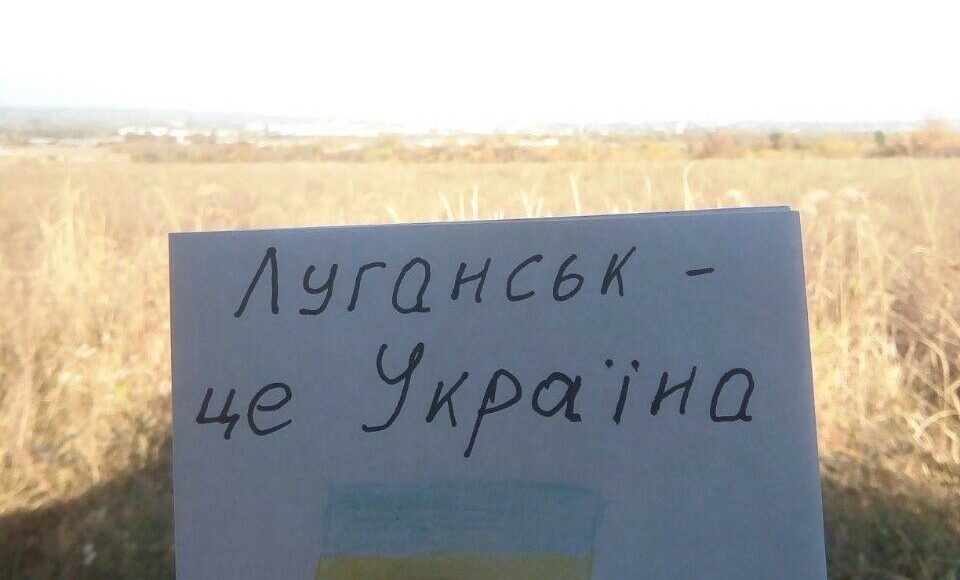 Луганськ -
це Україна